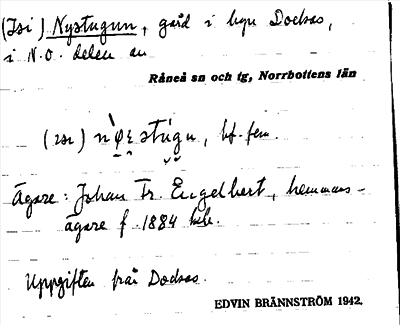 (Isi) Nystugun, gård i byn Dockas,
i N.O. delen av
Råneå sn och tg, Norrbottens län
(ısı) stúgu, bf. fem.
Ägare: Johan Fr. Engelbert, hemmans-
ägare f. 1884
Uppgiften från Dockas.
EDVIN BRÄNNSTRÖM 1942.